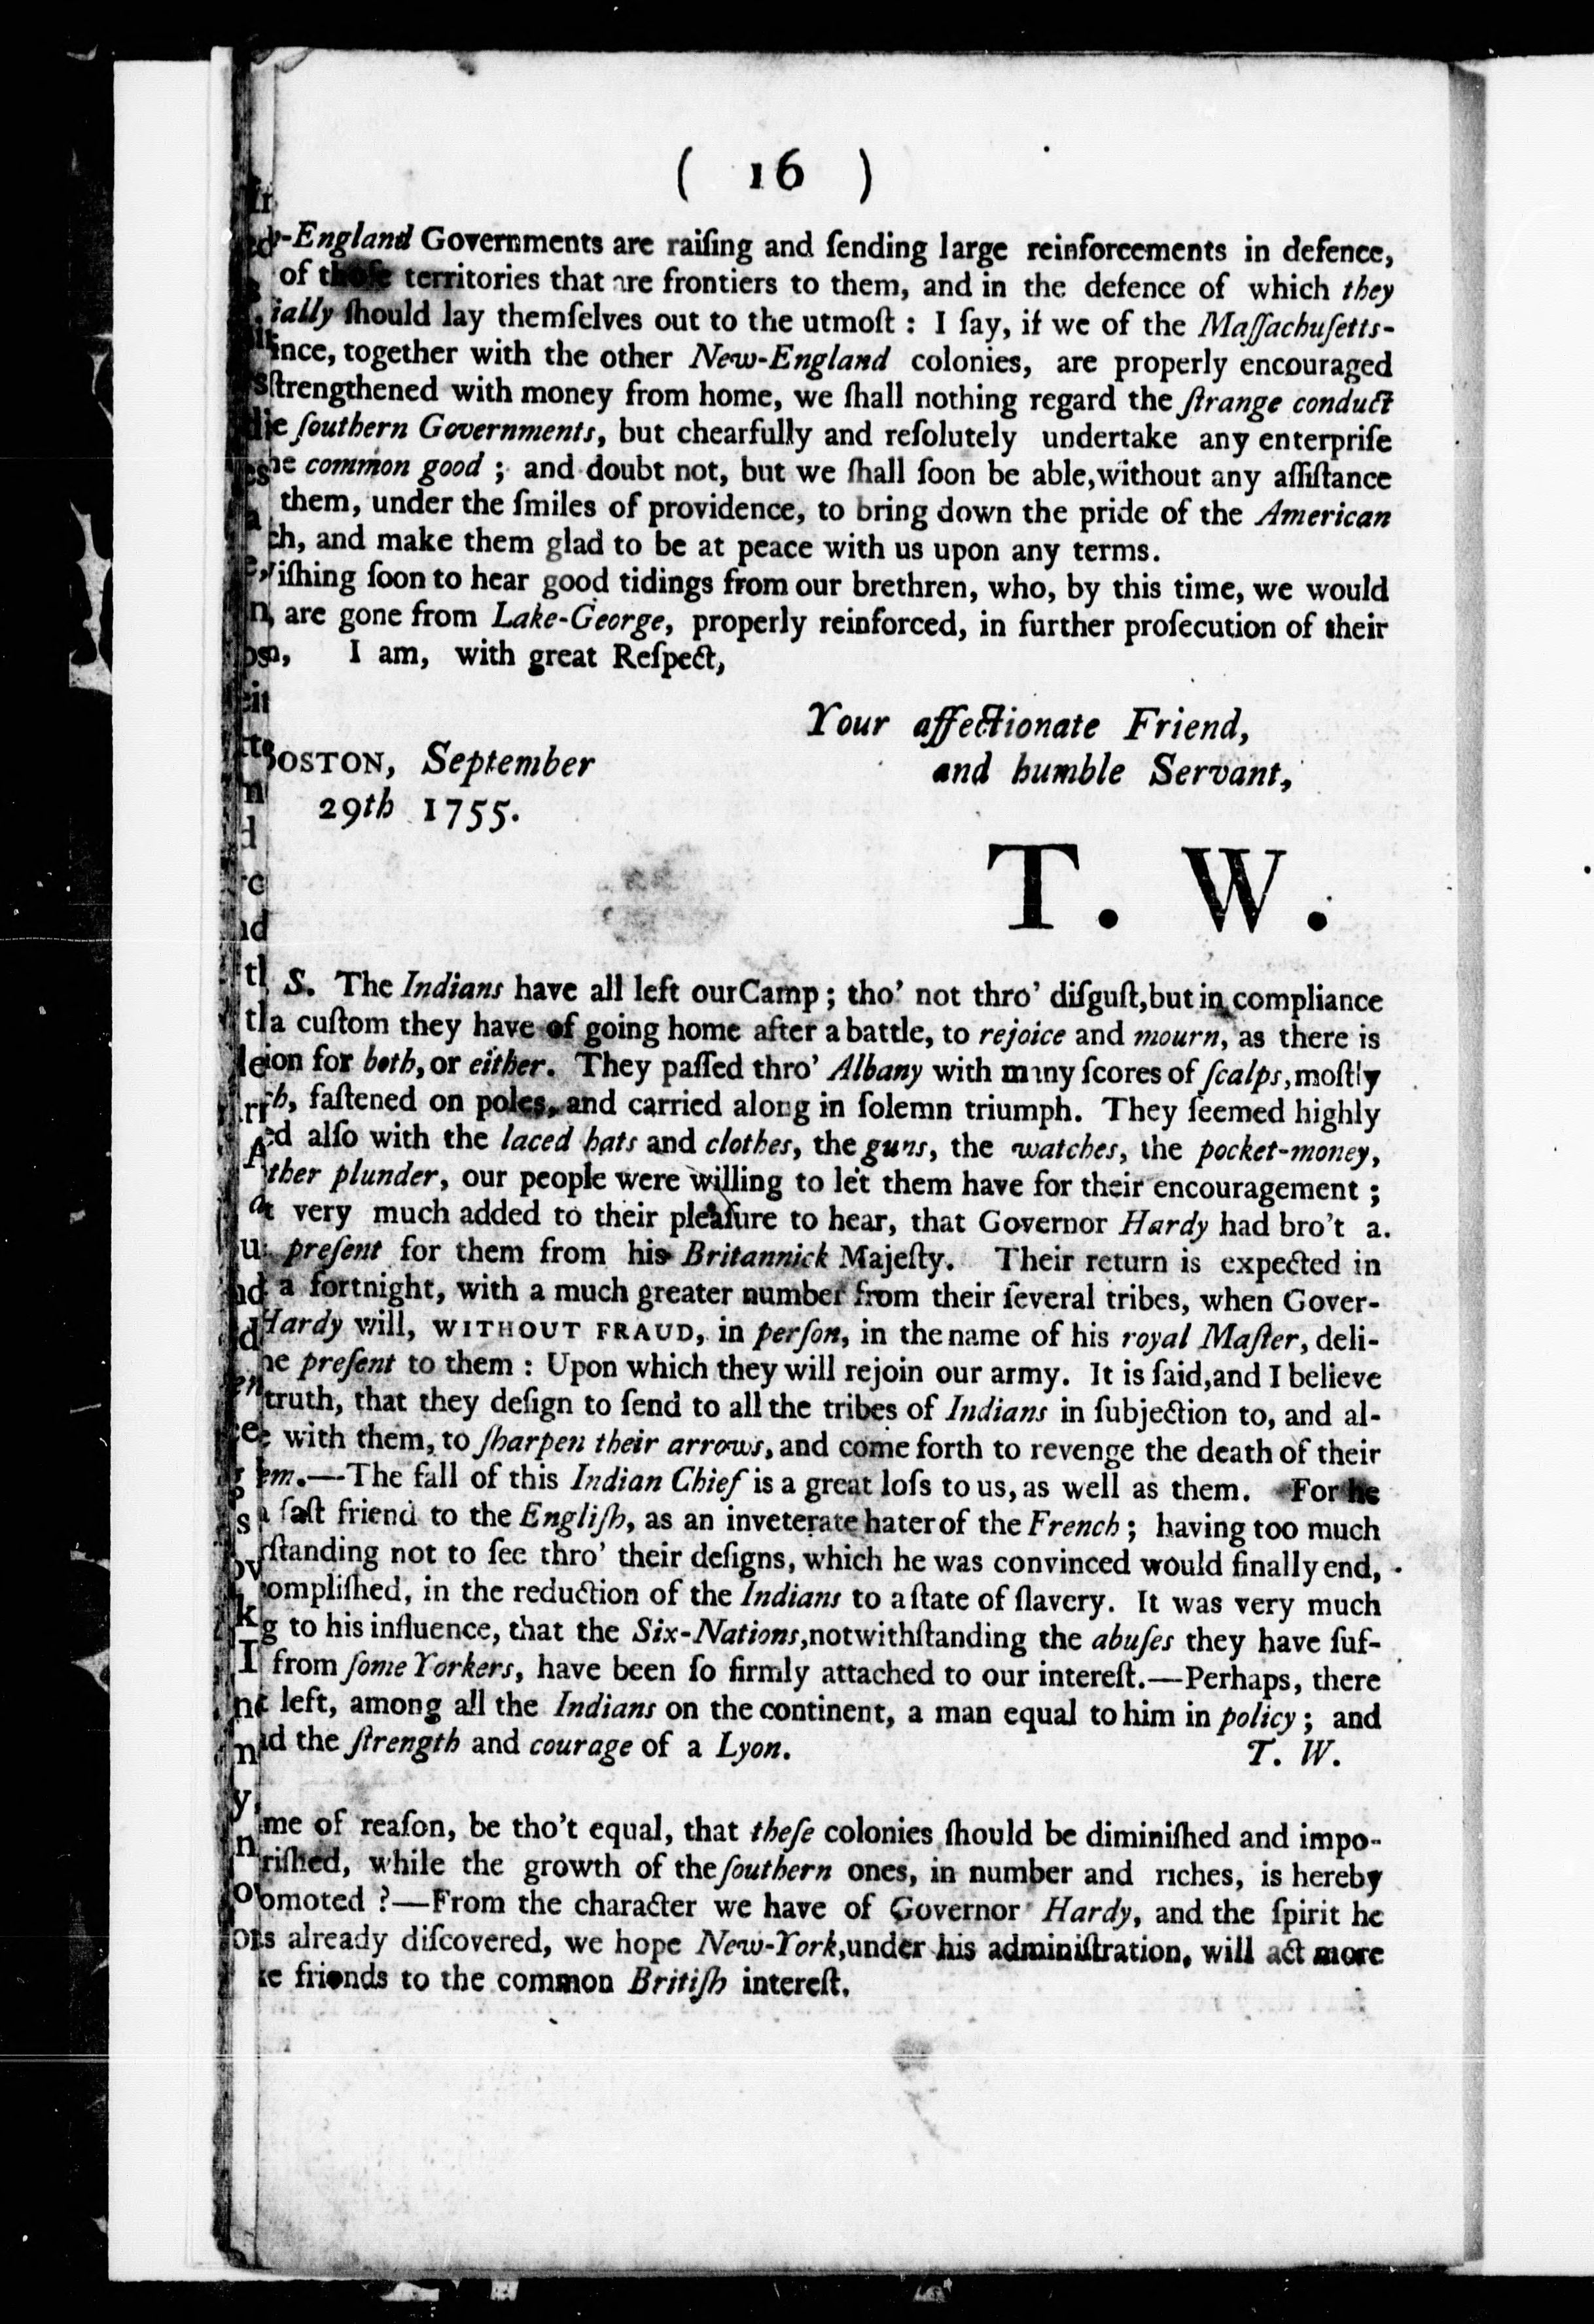 ( 16 )
-England Governments are raiſing and ſending large reinforcements in defence,
of thoſe territories that are frontiers to them, and in the defence of which they
ially ſhould lay themſelves out to the utmoſt : I ſay, if we of the Maſſachuſetts-
ince, together with the other New-England colonies, are properly encouraged
ſtrengthened with money from home, we ſhall nothing regard the ſtrange conduct
e ſouthern Governments, but chearfully and reſolutely undertake any enterpriſe
he common good ; and doubt not, but we ſhall ſoon be able, without any aſſiſtance
them, under the ſmiles of providence, to bring down the pride of the American
ch, and make them glad to be at peace with us upon any terms.
iſhing ſoon to hear good tidings from our brethren, who, by this time, we would
, are gone from Lake-George, properly reinforced, in further proſecution of their
n, I am, with great Reſpect,
Your affectionate Friend,
and humble Servant,
BOSTON, September
29th 1755.
T. W.
S. The Indians have all left our Camp ; tho' not thro' diſguſt, but in compliance
a cuſtom they have of going home after a battle, to rejoice and mourn, as there is
ion for both, or either. They paſſed thro' Albany with many ſcores of ſcalps, moſtly
ch, faſtened on poles, and carried along in ſolemn triumph. They ſeemed highly
ed alſo with the laced hats and clothes, the guns, the watches, the pocket-money,
ther plunder, our people were willing to let them have for their encouragement ;
t very much added to their pleaſure to hear, that Governor Hardy had bro't a
preſent for them from his Britannick Majeſty. Their return is expected in
a fortnight, with a much greater number from their ſeveral tribes, when Gover-
Hardy will, WITHOUT FRAUD, in perſon, in the name of his royal Maſter, deli-
he preſent to them : Upon which they will rejoin our army. It is ſaid, and I believe
truth, that they deſign to ſend to all the tribes of Indians in ſubjection to, and al-
with them, to ſharpen their arrows, and come forth to revenge the death of their
em.—The fall of this Indian Chief is a great loſs to us, as well as them. For he
a faſt friend to the Engliſh, as an inveterate hater of the French ; having too much
rſtanding not to ſee thro' their deſigns, which he was convinced would finally end,
compliſhed, in the reduction of the Indians to a ſtate of ſlavery. It was very much
g to his influence, that the Six-Nations, notwithſtanding the abuſes they have ſuf-
from ſome Yorkers, have been ſo firmly attached to our intereſt.—Perhaps, there
t left, among all the Indians on the continent, a man equal to him in policy ; and
d the ſtrength and courage of a Lyon. T. W.
me of reaſon, be tho't equal, that theſe colonies ſhould be diminiſhed and impo-
riſhed, while the growth of the ſouthern ones, in number and riches, is hereby
omoted ?—From the character we have of Governor Hardy, and the ſpirit he
s already diſcovered, we hope New-York, under his adminiſtration, will act more
ke friends to the common Britiſh intereſt.